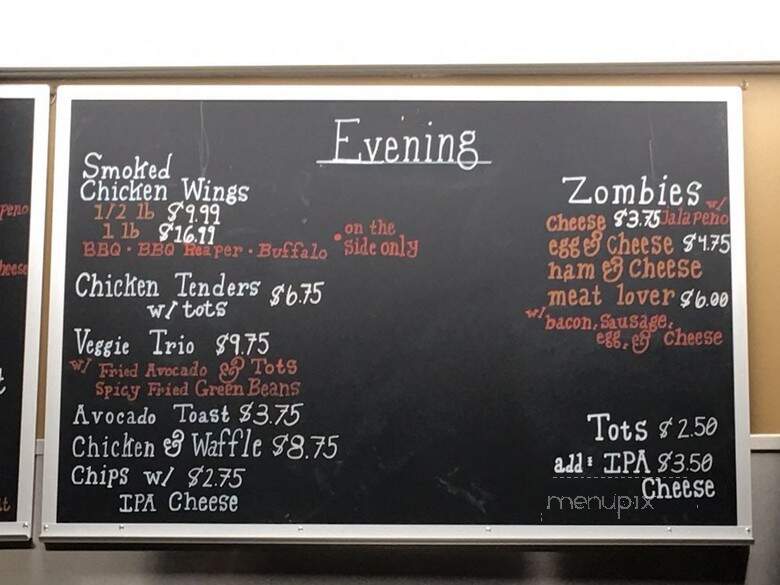 Evening
Smoked
Chicken Wings
1/2 lb $9.99
1 lb $16.99
BBQ · BBQ Reaper · Buffalo
• on the
side only
Chicken Tenders $6.75
w/ tots
Veggie Trio $9.75
w/ Fried Avocado & Tots
Spicy Fried Green Beans
Avocado Toast $3.75
Chicken & Waffle $8.75
Chips w/ $2.75
IPA Cheese
Zombies
cheese $3.75 w/ Jalapeno
egg & cheese $4.75
ham & cheese
meat lover $6.00
w/ bacon, sausage,
egg, & cheese
Tots $2.50
add: IPA $3.50
Cheese
menupix